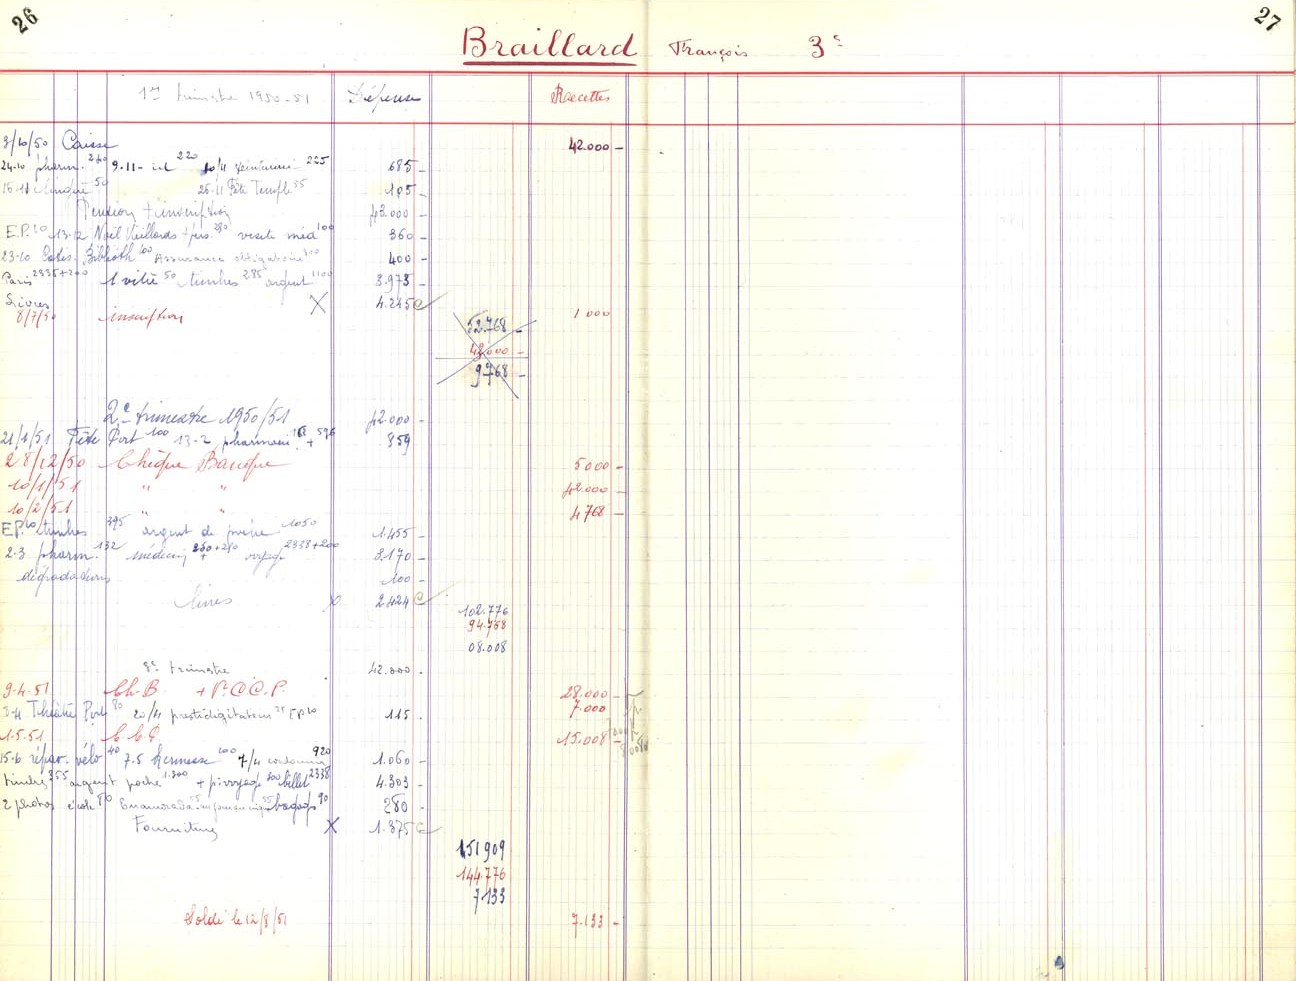 26
27
Braillard François 3e
1er trimestre 1950-51 Dépense Recettes
3/10/50 Caisse 42.000 -
24-10 pharm. 240 9-11- id 220 10/11 teinturerie 225 685 -
50 25-11 Fête Temple 55 105 -
Pension + inscription 43.000 -
E.P. 20 13-12 Noël Vieillards 280 visite méd 100 360 -
23-10 Cotis. Biblioth 100 Assurance obligatoire 300 400 -
Paris 2338+200 1 vitre 50 timbres 285 argent 1100 3.973 -
Livres X 4.245
8/7/50 inscription 1 000
52.768 -
43.000 -
9768 -
2e trimestre 1950/51 42.000 -
21/1/51 Fête Port 100 13-2 pharmacie 163 + 596 859 -
28/12/50 Chèque Banque 5000 -
10/1/51 " " 42.000 -
10/2/51 " " 4768 -
E.P. 10 timbres 395 argent de poche 1050 1.455 -
2-3 pharm. 132 médecin 250+250 voyage 2338+200 3.170 -
dégradations 100 -
livres X 2.424
102.776
94.768
08.008
3e trimestre 42.000 -
9-4-51 Ch.B. + P.C.C.P. 28.000 -
7.000 -
3-4 Théâtre Port 80 20/4 prestidigitateur 25 E.P. 10 115 -
1.5.51 C.C.P 15.008 -
15-6 répar. vélo 40 7.5 Kermesse 100 7/4 cordonnier 920 1.060 -
timbres 355 argent poche 1.300 + voyage 300 billet 2338 4.303 -
2 photos école 80 bagage 90 280 -
Fournitures X 1.375
151909
144.776
7.133
Soldé le 12/8/51 7.133 -